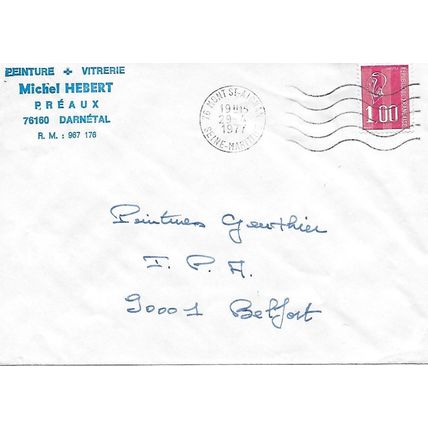 PEINTURE + VITRERIE
Michel HEBERT
PRÉAUX
76160 DARNÉTAL
R. M. : 967 176
76 MONT ST-AIGNAN
19H
29-4
1977
SEINE-MARITIME
1.00
Peintures Gauthier
I. P. A.
90001 Belfort